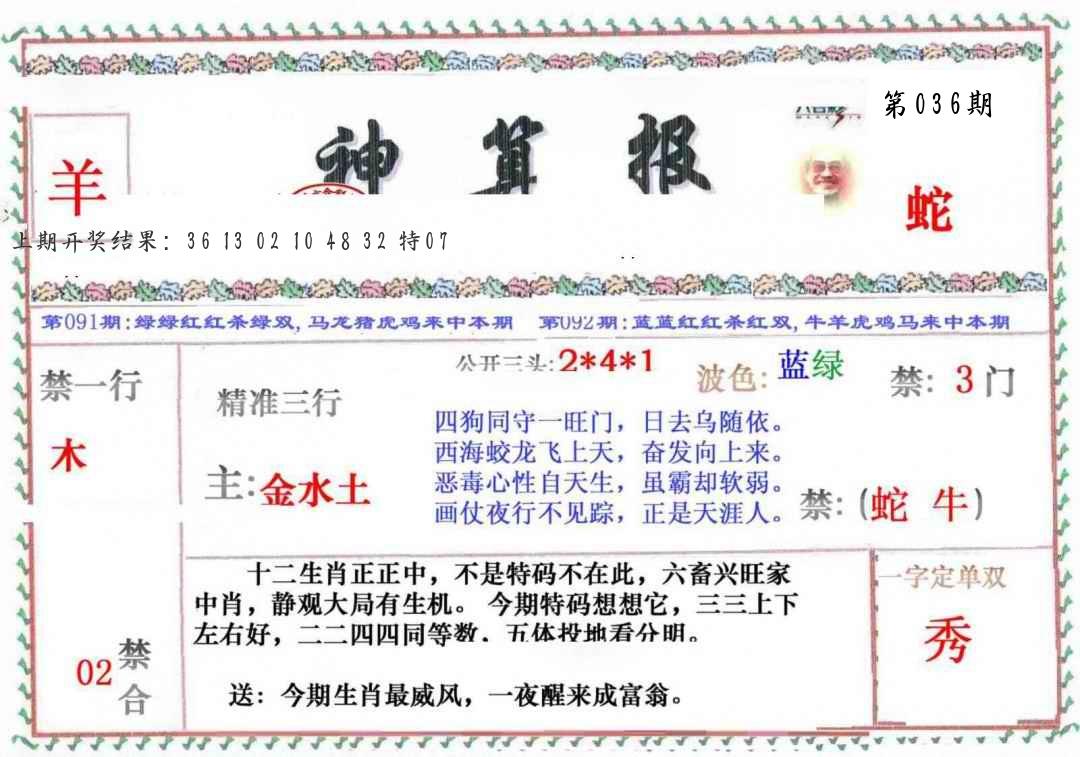 第036期
神算报
羊
蛇
上期开奖结果: 36 13 02 10 48 32 特07
第091期:绿绿红红杀绿双,马龙猪虎鸡来中本期 第092期:蓝蓝红红杀红双,牛羊虎鸡马来中本期
禁一行
木
公开三头:2*4*1
波色:蓝绿
禁: 3门
精准三行
主:金水土
四狗同守一旺门，日去乌随依。
西海蛟龙飞上天，奋发向上来。
恶毒心性自天生，虽霸却软弱。
画仗夜行不见踪，正是天涯人。
禁:(蛇 牛)
十二生肖正正中，不是特码不在此，六畜兴旺家
中肖，静观大局有生机。 今期特码想想它，三三上下
左右好，二二四四同等数，五体投地看分明。
送：今期生肖最威风，一夜醒来成富翁。
02
禁合
一字定单双
秀